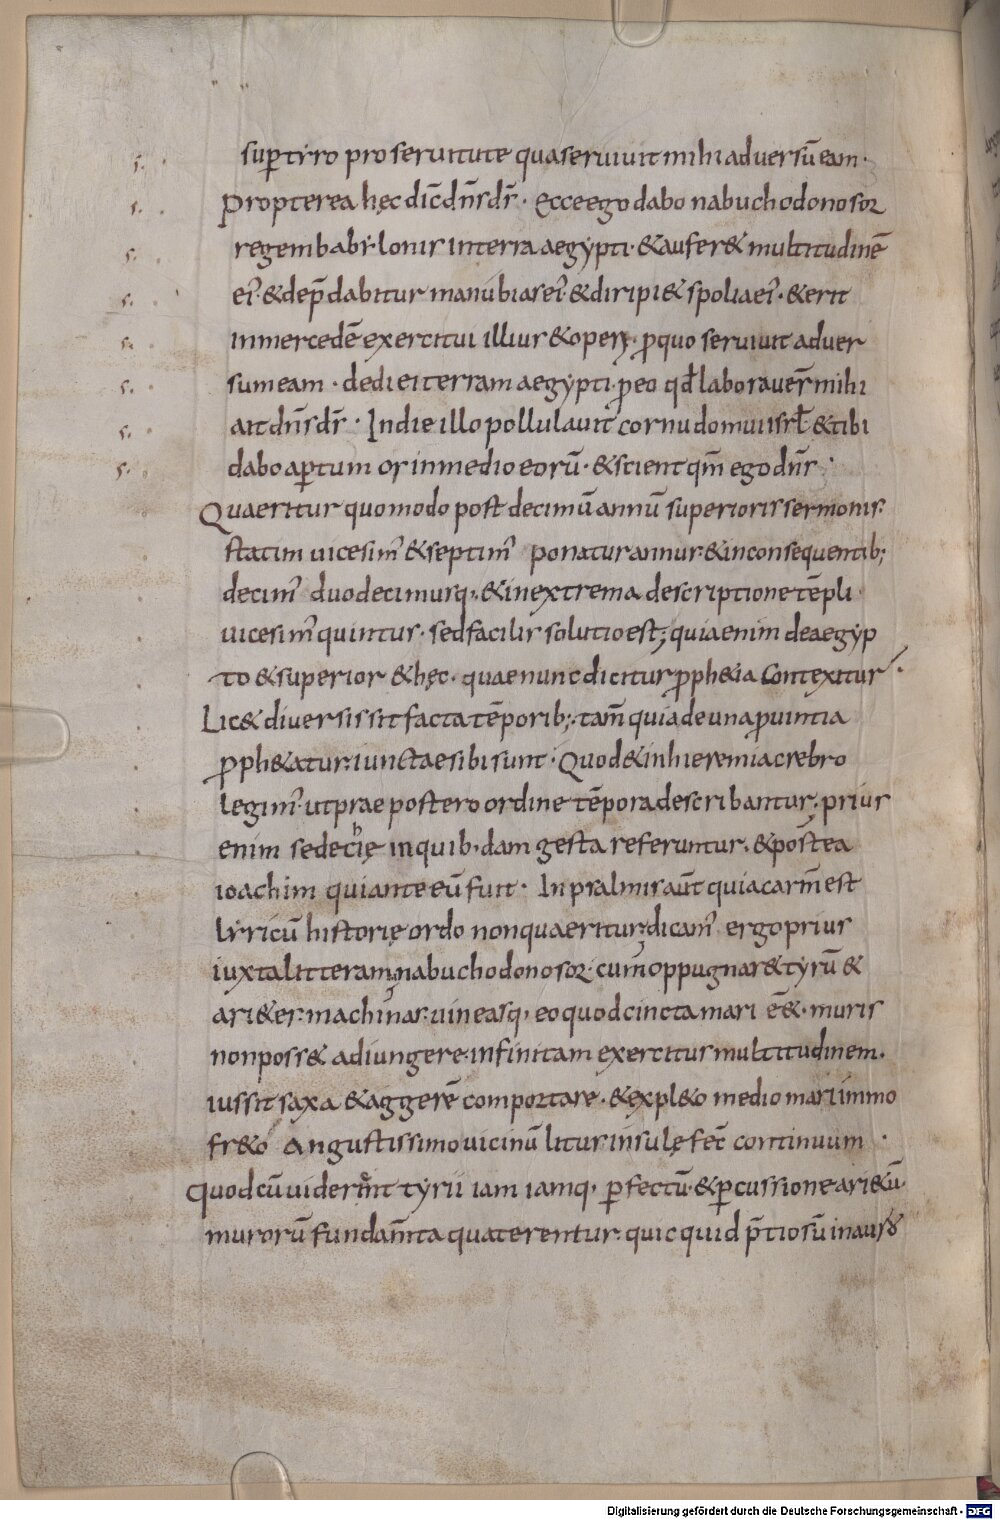 sup̄ tyro pro seruitute qua seruiuit mihi aduersū eam·
Propterea hęc dic̄ dn̄s ds̄· Ecce ego dabo nabuchodonosor
regem babylonis in terra aegypti· & aufer& multitudinē
eiꝰ· & dep̄dabitur manubias eiꝰ· & diripi& spolia eiꝰ· & erit
in mercedē exercitui illius & operi· ꝑ quo seruiuit aduer
sum eam· dedi ei terram aegypti· ꝓ eo qd̄ laborauer̄ mihi
ait dn̄s ds̄· In die illo pollulauit cornu domui isrł & tibi
dabo aꝑtum os in medio eorū· & scient qm̄ ego dn̄s·
Quaeritur quomodo post decimū annū superioris sermonis·
statim uicesimꝰ & septimꝰ ponatur annus· & in consequentib;
decimꝰ duodecimusq, & in extrema descriptione tēpli
uicesimꝰ quintus· sed facilis solutio est; quia enim de aegyp
to & superior & hęc· quae nunc dicitur ꝓph&ia contexitur·
Lic& diuersis sit facta tēporib;, tam̄ quia de una ꝓuintia
ꝓph&atur· iunctae sibi sunt· Quod & in hieremia crebro
legimꝰ· ut prae postero ordine tēpora describantur; prius
enim sedecię in quib,dam gesta referuntur· & postea
ioachim qui ante eū fuit· In psalmis aūt quia carm̄ est
lyricū historię ordo non quaeritur; dicamꝰ ergo prius
iuxta litteram; nabuchodonosor· cum oppugnar& tyrū &
ari&es· machinas· uineasq, eo quod cincta mari ēē&· muris
non poss& adiungere· infinitam exercitus multitudinem·
iussit saxa & aggerē comportare· & expl&o medio mari immo
fr&o angustissimo uicinū litus insulę fec̄ continuum·
Quod cū uiderint tyrii iam iamq, ꝑfectū· & ꝑcussione ari&ū
murorū fundam̄ta quaterentur· quicquid p̄tiosū in auro
Digitalisierung gefördert durch die Deutsche Forschungsgemeinschaft - DFG